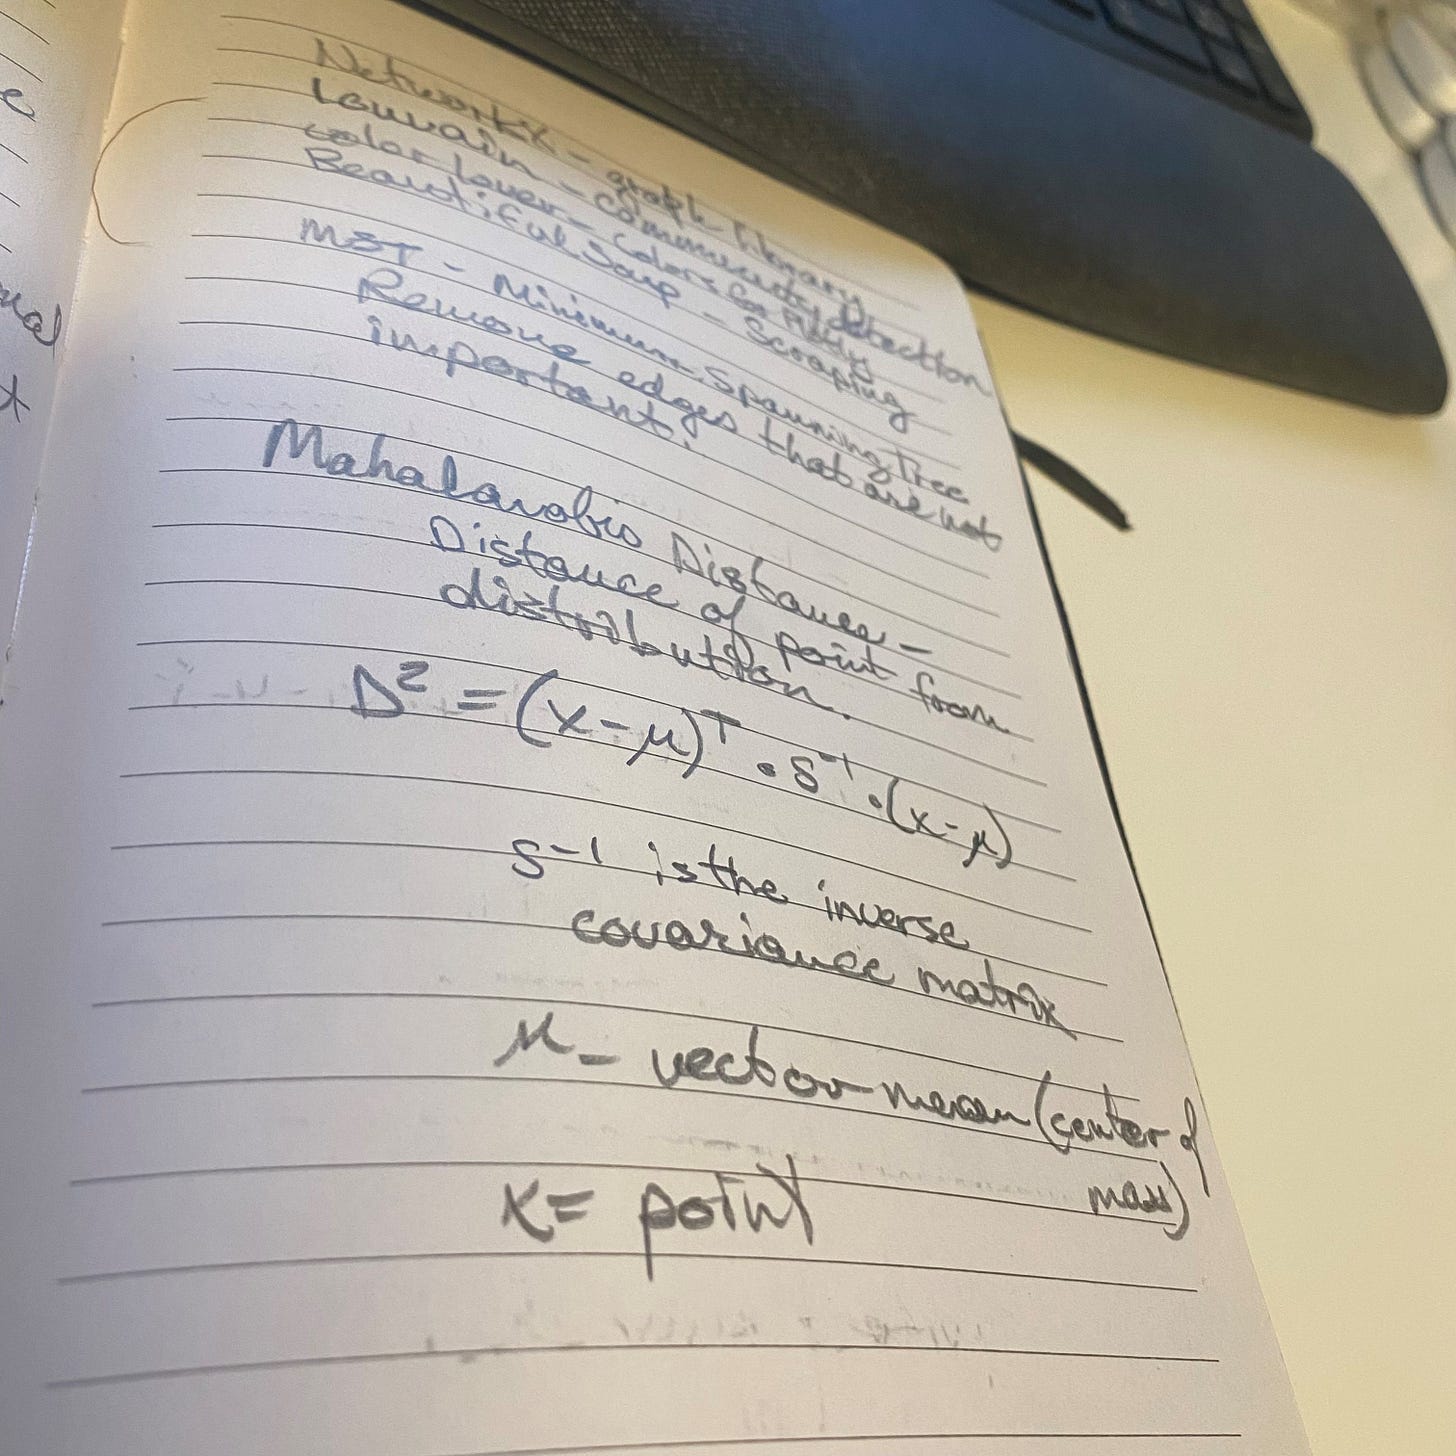 e
nal
t
NetworkX - graph library
Louvain - Community detection
color lover - Colors for Plotly
Beautiful Soup - Scraping
MST - Minimum Spanning Tree
Remove edges that are not
important.
Mahalanobis Distance -
Distance of point from
distribution.
D² = (x-μ)ᵀ · S⁻¹ · (x-μ)
S⁻¹ is the inverse
covariance matrix
μ - vector mean (center of
mass)
x = point